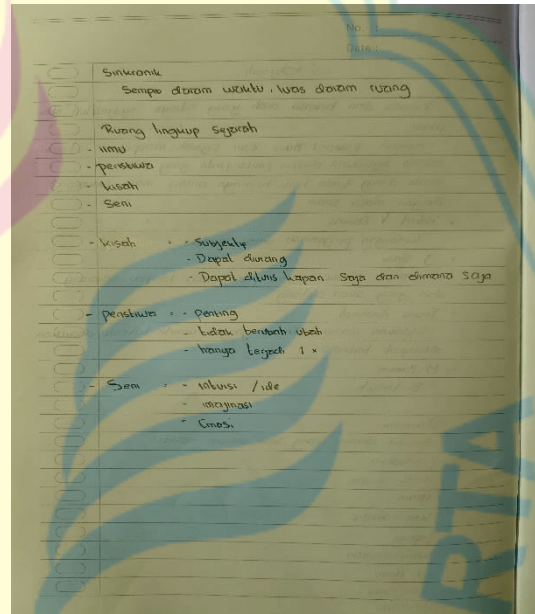 No. :
Date :
Sinkronik
Sempit dalam waktu, luas dalam ruang
Ruang lingkup sejarah
- ilmu
- peristiwa
- kisah
- Seni
- kisah : - Subjektif
- Dapat diulang
- Dapat ditulis kapan saja dan dimana saja
- peristiwa : - penting
- tidak berubah ubah
- hanya terjadi 1 x
- Seni : - intuisi / ide
- imajinasi
- Emosi
RTA